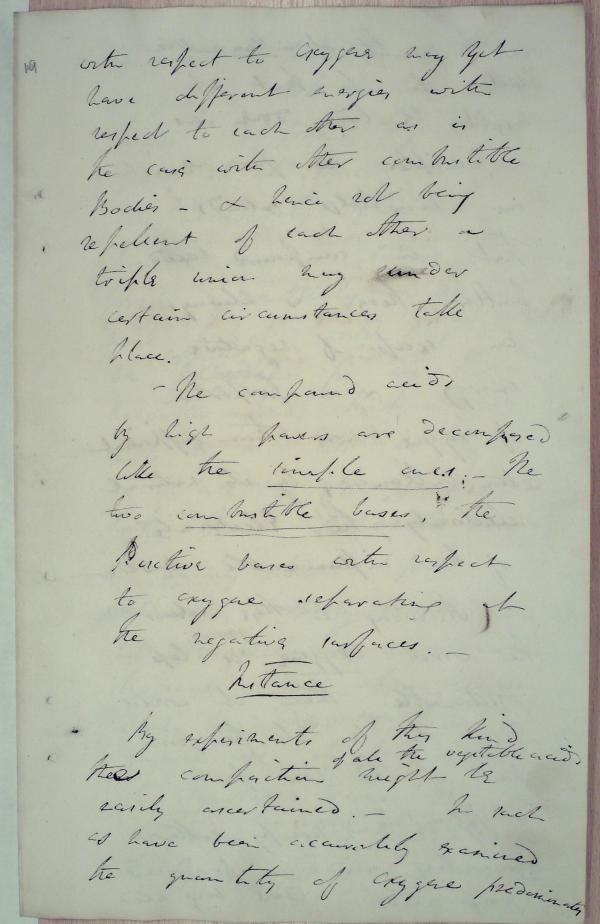 19
with respect to oxygene may yet
have different energies with
respect to each other as is
the case with other combustible
Bodies - & hence not being
repellent of each other a
triple union may under
certain circumstances take
place.
- The compound acids
by high powers are decomposed
like the simple ones; - The
two combustible bases, the
Positive bases with respect
to oxygene separating at
the negative surfaces. -
Instance
By experiments of this kind
of all the vegetable acids
the composition might be
easily ascertained. - In such
as have been accurately examined
the quantity of oxygene predominates